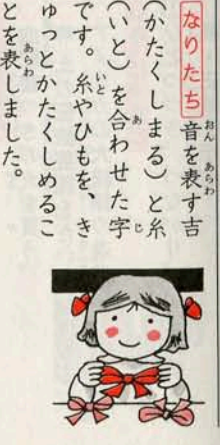 なりたち 音を表す吉
(かたくしまる)と糸
(いと)を合わせた字
です。糸やひもを、き
ゅっとかたくしめるこ
とを表しました。